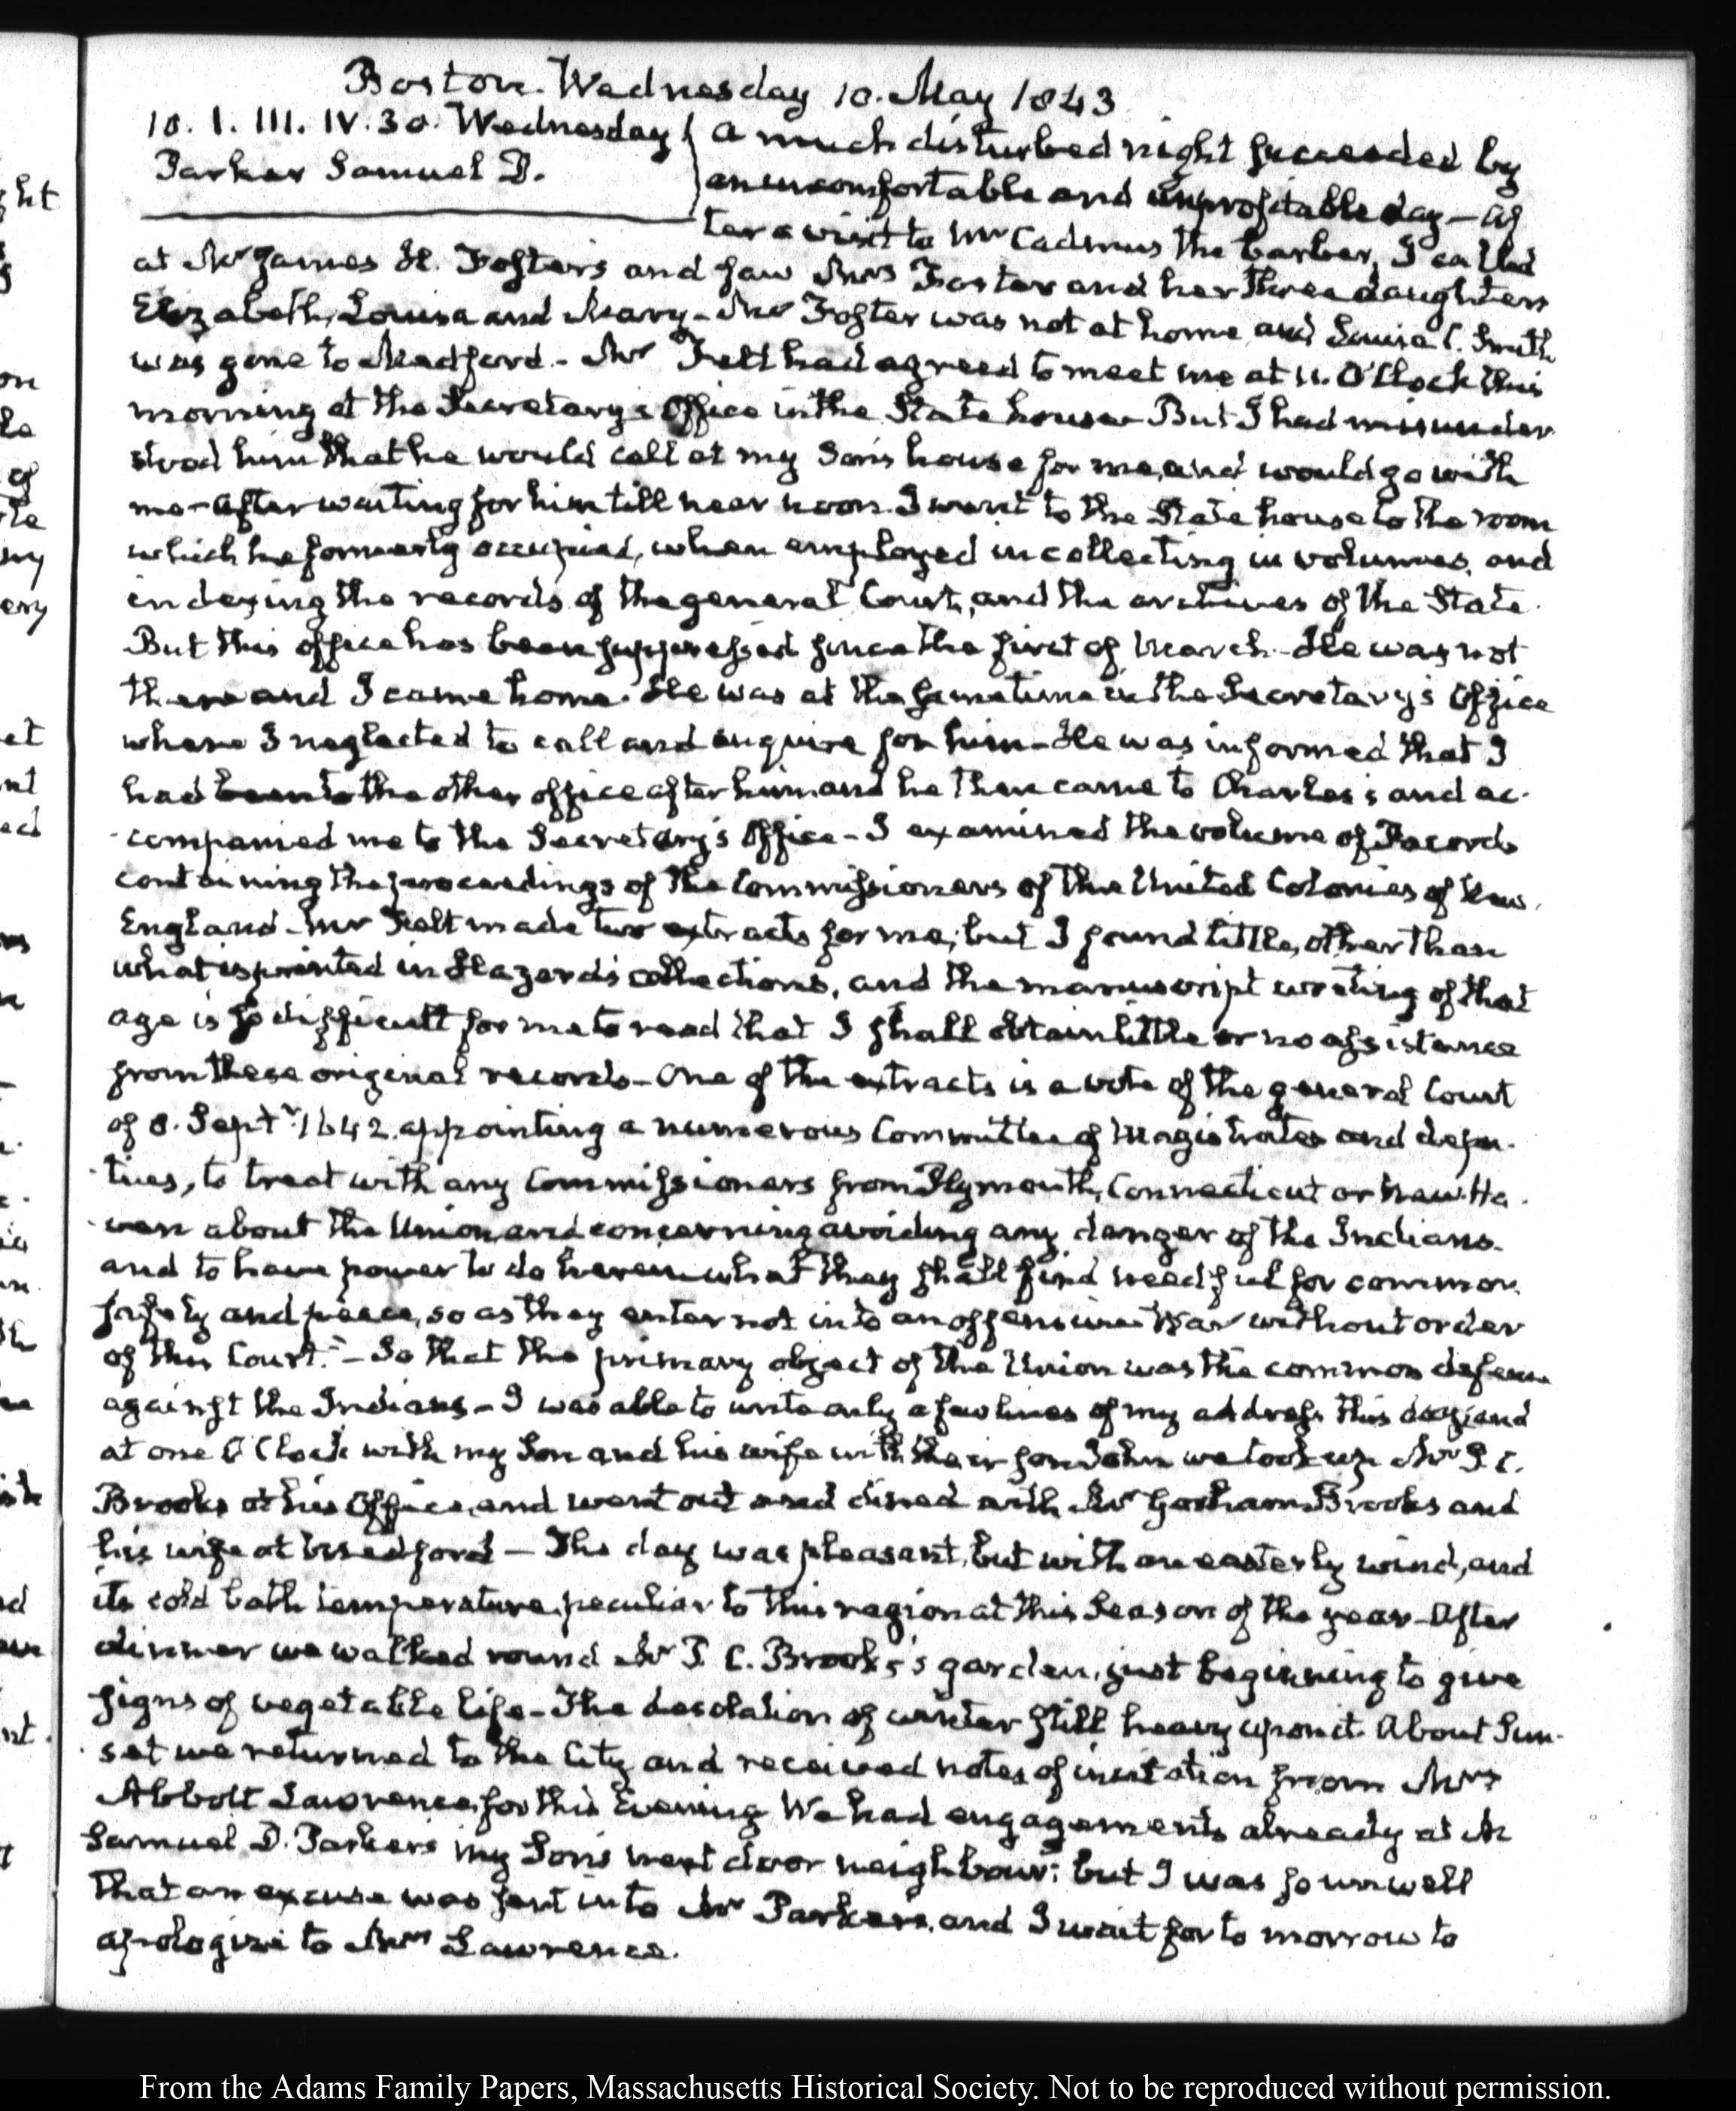 Boston. Wednesday 10. May 1843
10. I. III. IV. 30. Wednesday
Parker Samuel D.
A much disturbed night succeeded by
an uncomfortable and unprofitable day — Af
ter a visit to Mr Cadmus the barber, I called
at Mr James H. Foster's and saw Mrs Foster and her three daughters
Elizabeth, Louisa and Mary - Mr Foster was not at home and Louisa C. Smith
was gone to Medford - Mr Felt had agreed to meet me at 11. O'Clock this
morning at the Secretary's Office in the State house - But I had misunder
stood him that he would call at my Son's house for me, and would go with
me - After waiting for him till near noon I went to the State house to the room
which he formerly occupied, when employed in collecting in volumes, and
indexing the records of the general Court, and the archives of the State.
But this office has been suppressed since the first of March - He was not
there and I came home. He was at the same time in the Secretary's Office
where I neglected to call and enquire for him - He was informed that I
had been to the other office after him and he then came to Charles's and ac-
-companied me to the Secretary's Office - I examined the volume of Records
containing the proceedings of the Commissioners of the United Colonies of New
England - Mr Felt made two extracts for me; but I found little, other than
what is printed in Hazard's collections, and the manuscript writing of that
age is so difficult for me to read that I shall obtain little or no assistance
from these original records - One of the extracts is a vote of the general Court
of 8. Septr 1642. appointing a numerous Committee of Magistrates and depu-
-ties, to treat with any Commissioners from Plymouth, Connecticut or New-Ha-
-ven about the Union and concerning avoiding any danger of the Indians.
and to have power to do herein what they shall find needful for common
safety and peace, so as they enter not into an offensive War without order
of this Court." - So that the primary object of the Union was the common defence
against the Indians - I was able to write only a few lines of my address this day, and
at one O'Clock with my Son and his wife with their son John we took up Mr P. C.
Brooks at his Office, and went out and dined with Mr Gorham Brooks and
his wife at Medford — The day was pleasant, but with an easterly wind, and
its cold bath temperature, peculiar to this region at this Season of the year - After
dinner we walked round Mr P. C. Brooks's garden, just beginning to give
signs of vegetable life - The desolation of winter still heavy upon it. About Sun-
-set we returned to the City and received notes of invitation from Mrs
Abbott Lawrence for this Evening We had engagements already at Mr
Samuel D. Parker's my Son's next door neighbour; but I was so unwell
that an excuse was sent in to Mr Parker's, and I wait for to morrow to
apologize to Mrs Lawrence.
From the Adams Family Papers, Massachusetts Historical Society. Not to be reproduced without permission.